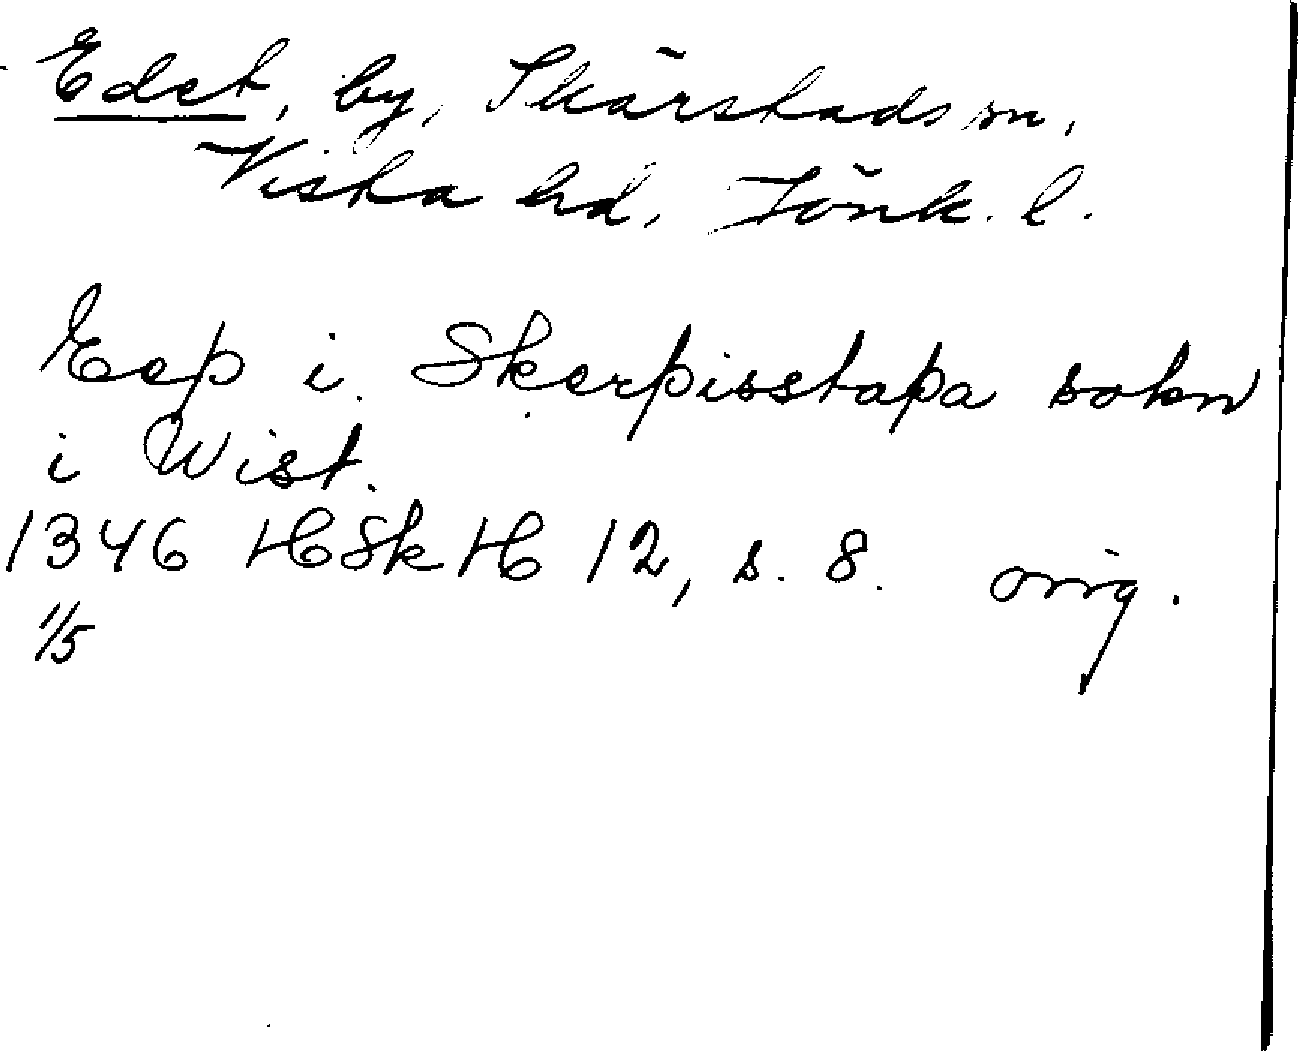 Edet, by, Skärstads sn,
Vista hd, Jönk. l.
Eeþ i Skerþisstaþa sokn
i Wist.
1346 HSkH 12, s. 8. orig.
1/5